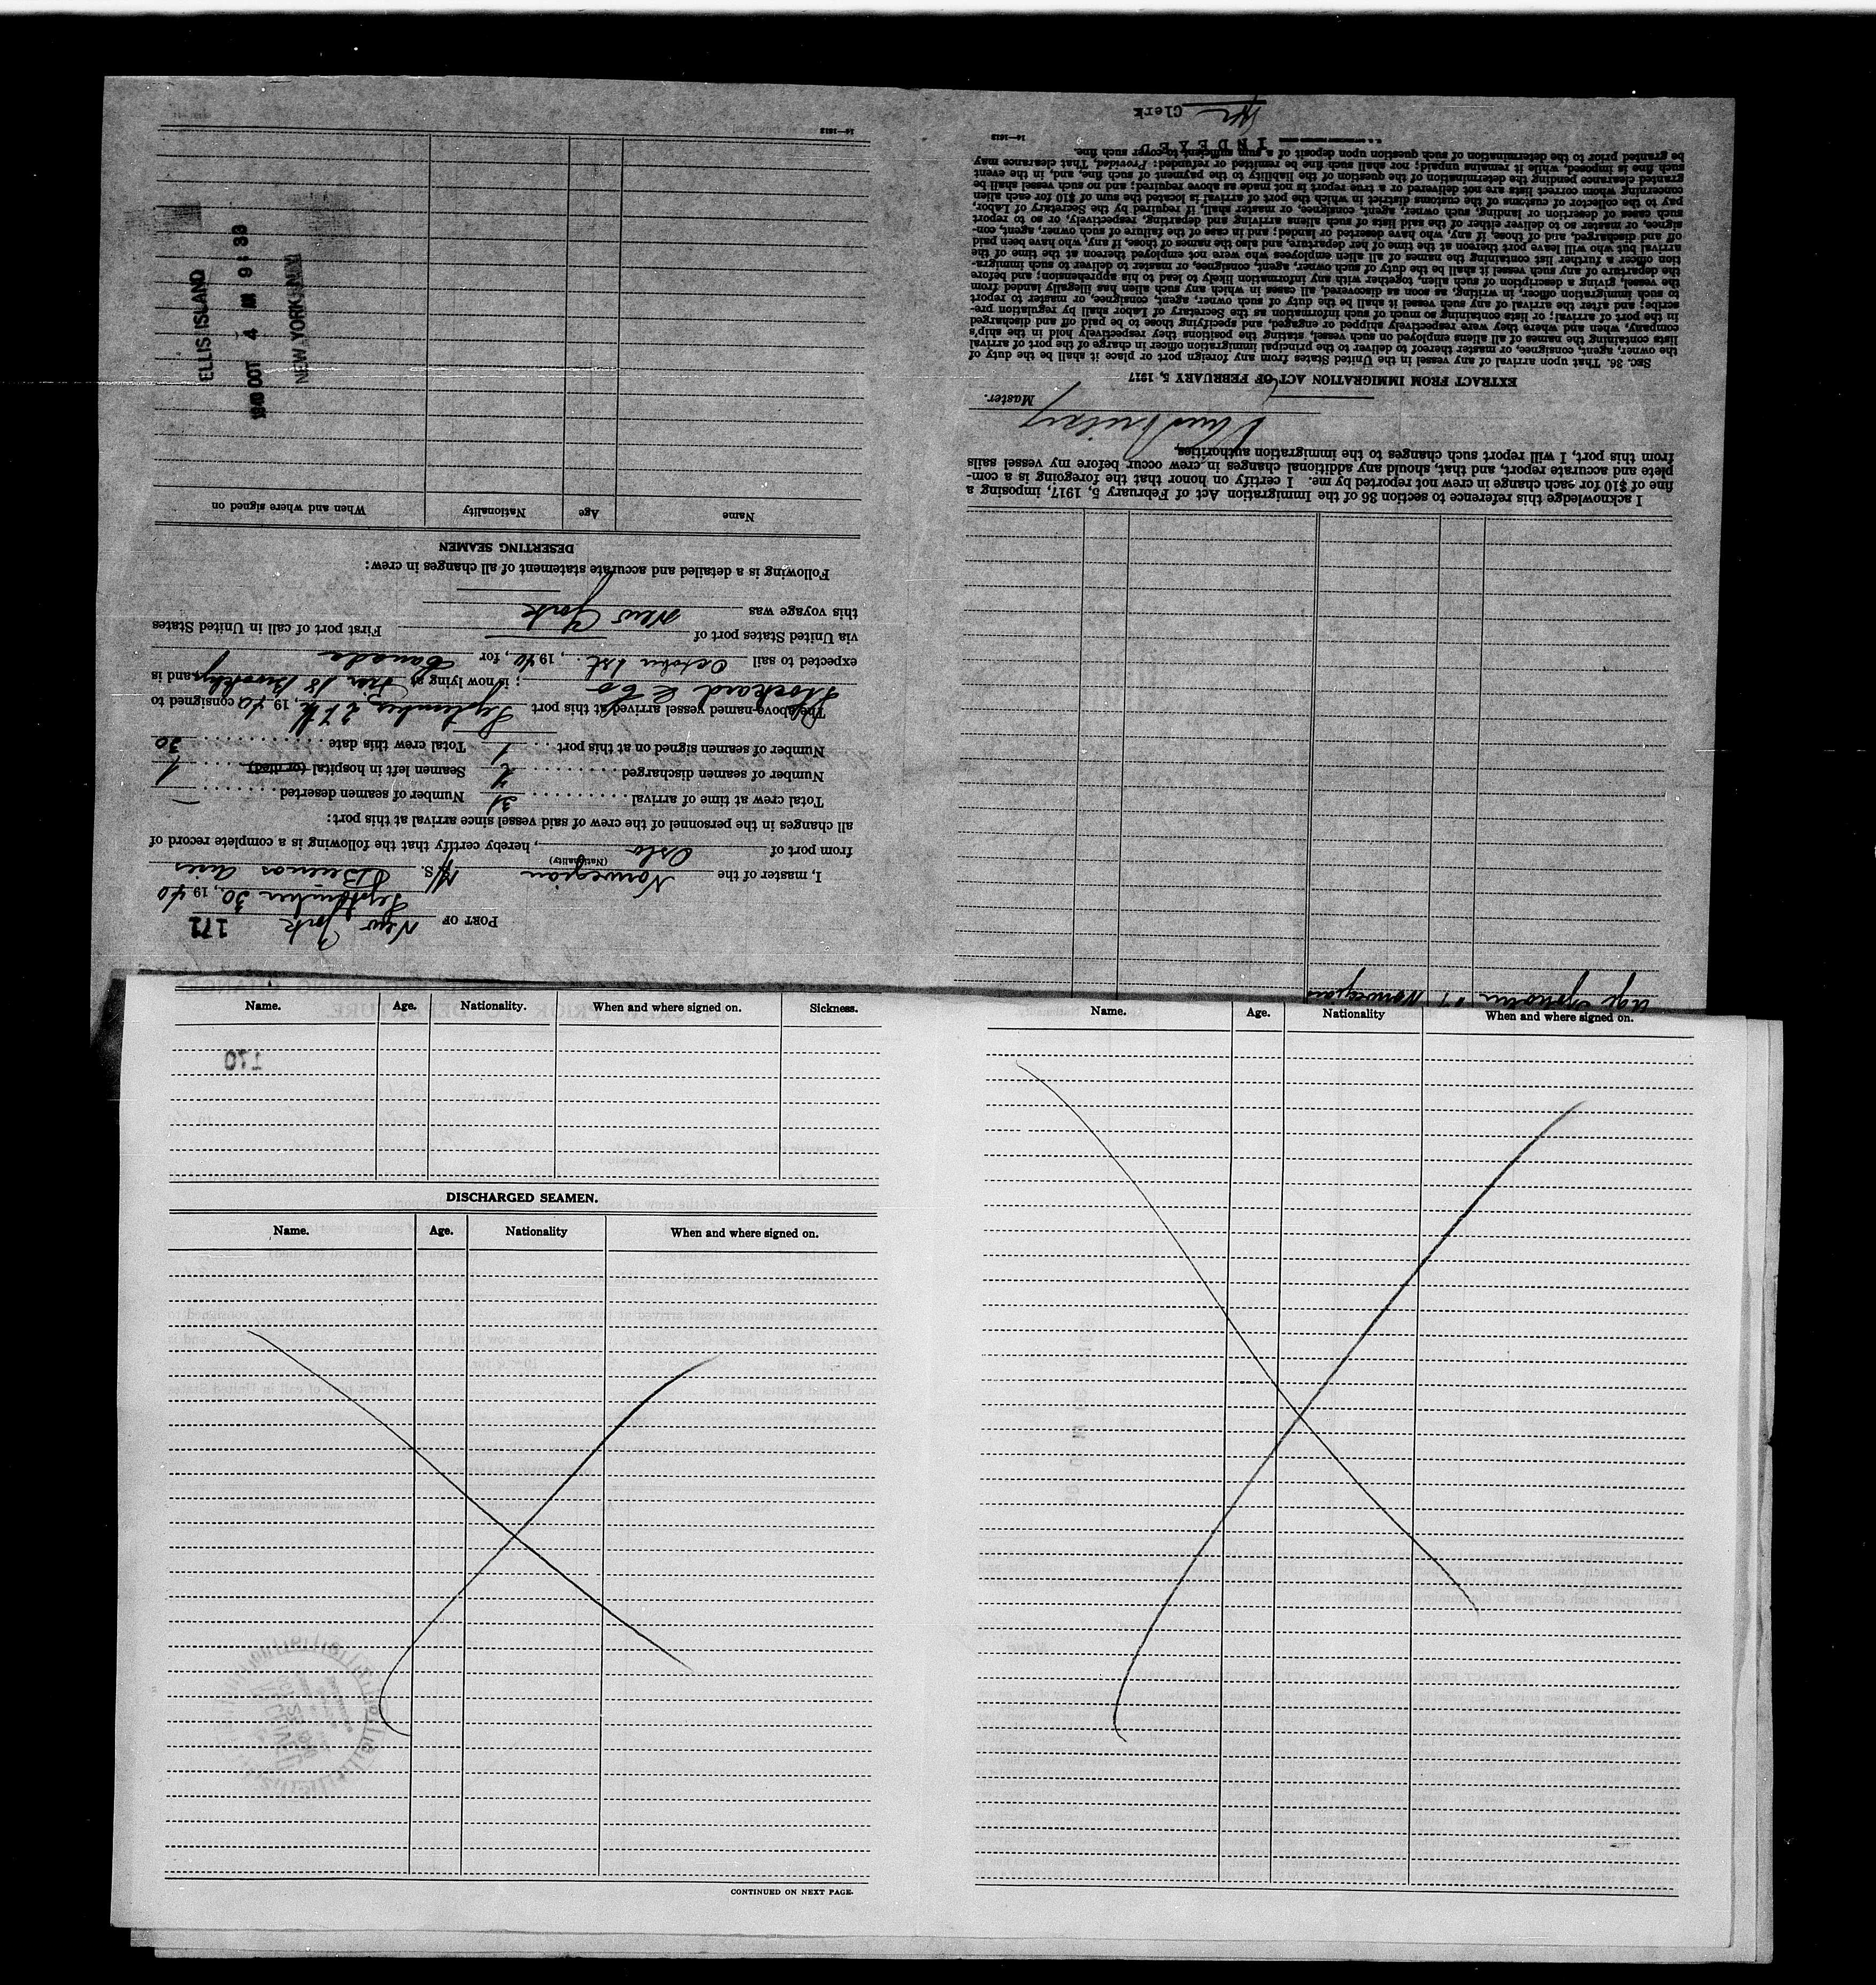 171
PORT OF New York
September 30, 1940
I, master of the Norwegian M/S. Buenos Aires
(Nationality)
from port of Oslo, hereby certify that the following is a complete record of
all changes in the personnel of the crew of said vessel since arrival at this port:
Total crew at time of arrival 31 Number of seamen deserted —
Number of seamen discharged Seamen left in hospital (or died) 1
Number of seamen signed on at this port 1 Total crew this date 30
The above-named vessel arrived at this port September 27th, 1940, consigned to
Stockard & Co; is now lying at Pier 18 Brooklyn, and is
expected to sail October 1st, 1940, for Canada
via United States port of First port of call in United States
this voyage was New York
Following is a detailed and accurate statement of all changes in crew:
DESERTING SEAMEN
Name Age Nationality When and where signed on
ELLIS ISLAND
1940 OCT 4 AM 9:33
16—1613
Norwegian
I acknowledge this reference to section 36 of the Immigration Act of February 5, 1917, imposing a
fine of $10 for each change in crew not reported by me. I certify on honor that the foregoing is a com-
plete and accurate report, and that, should any additional changes in crew occur before my vessel sails
from this port, I will report such changes to the immigration authorities.
Master.
EXTRACT FROM IMMIGRATION ACT OF FEBRUARY 5, 1917
SEC. 36. That upon arrival of any vessel in the United States from any foreign port or place it shall be the duty of
the owner, agent, consignee, or master thereof to deliver to the principal immigration officer in charge of the port of arrival
lists containing the names of all aliens employed on such vessel, stating the positions they respectively hold in the ship's
company, when and where they were respectively shipped or engaged, and specifying those to be paid off and discharged
in the port of arrival; or lists containing so much of such information as the Secretary of Labor shall by regulation pre-
scribe; and after the arrival of any such vessel it shall be the duty of such owner, agent, consignee, or master to report
to such immigration officer, in writing, as soon as discovered, all cases in which any such alien has illegally landed from
the vessel, giving a description of such alien, together with any information likely to lead to his apprehension; and before
the departure of any such vessel it shall be the duty of such owner, agent, consignee, or master to deliver to such immigra-
tion officer a further list containing the names of all alien employees who were not employed thereon at the time of the
arrival but who will leave port thereon at the time of her departure, and also the names of those, if any, who have been paid
off and discharged, and of those, if any, who have deserted or landed; and in case of the failure of such owner, agent, con-
signee, or master so to deliver either of the said lists of such aliens arriving and departing, respectively, or so to report
such cases of desertion or landing, such owner, agent, consignee, or master shall, if required by the Secretary of Labor,
pay to the collector of customs of the customs district in which the port of arrival is located the sum of $10 for each alien
concerning whom correct lists are not delivered or a true report is not made as above required; and no such vessel shall be
granted clearance pending the determination of the question of the liability to the payment of such fine, and, in the event
such fine is imposed, while it remains unpaid; nor shall such fine be remitted or refunded: Provided, That clearance may
be granted prior to the determination of such question upon deposit of a sum sufficient to cover such fine.
16—1613
INDEXED
Clerk
Name. Age. Nationality. When and where signed on. Sickness.
170
DISCHARGED SEAMEN.
Name. Age. Nationality When and where signed on.
CONTINUED ON NEXT PAGE.
Name. Age. Nationality When and where signed on.